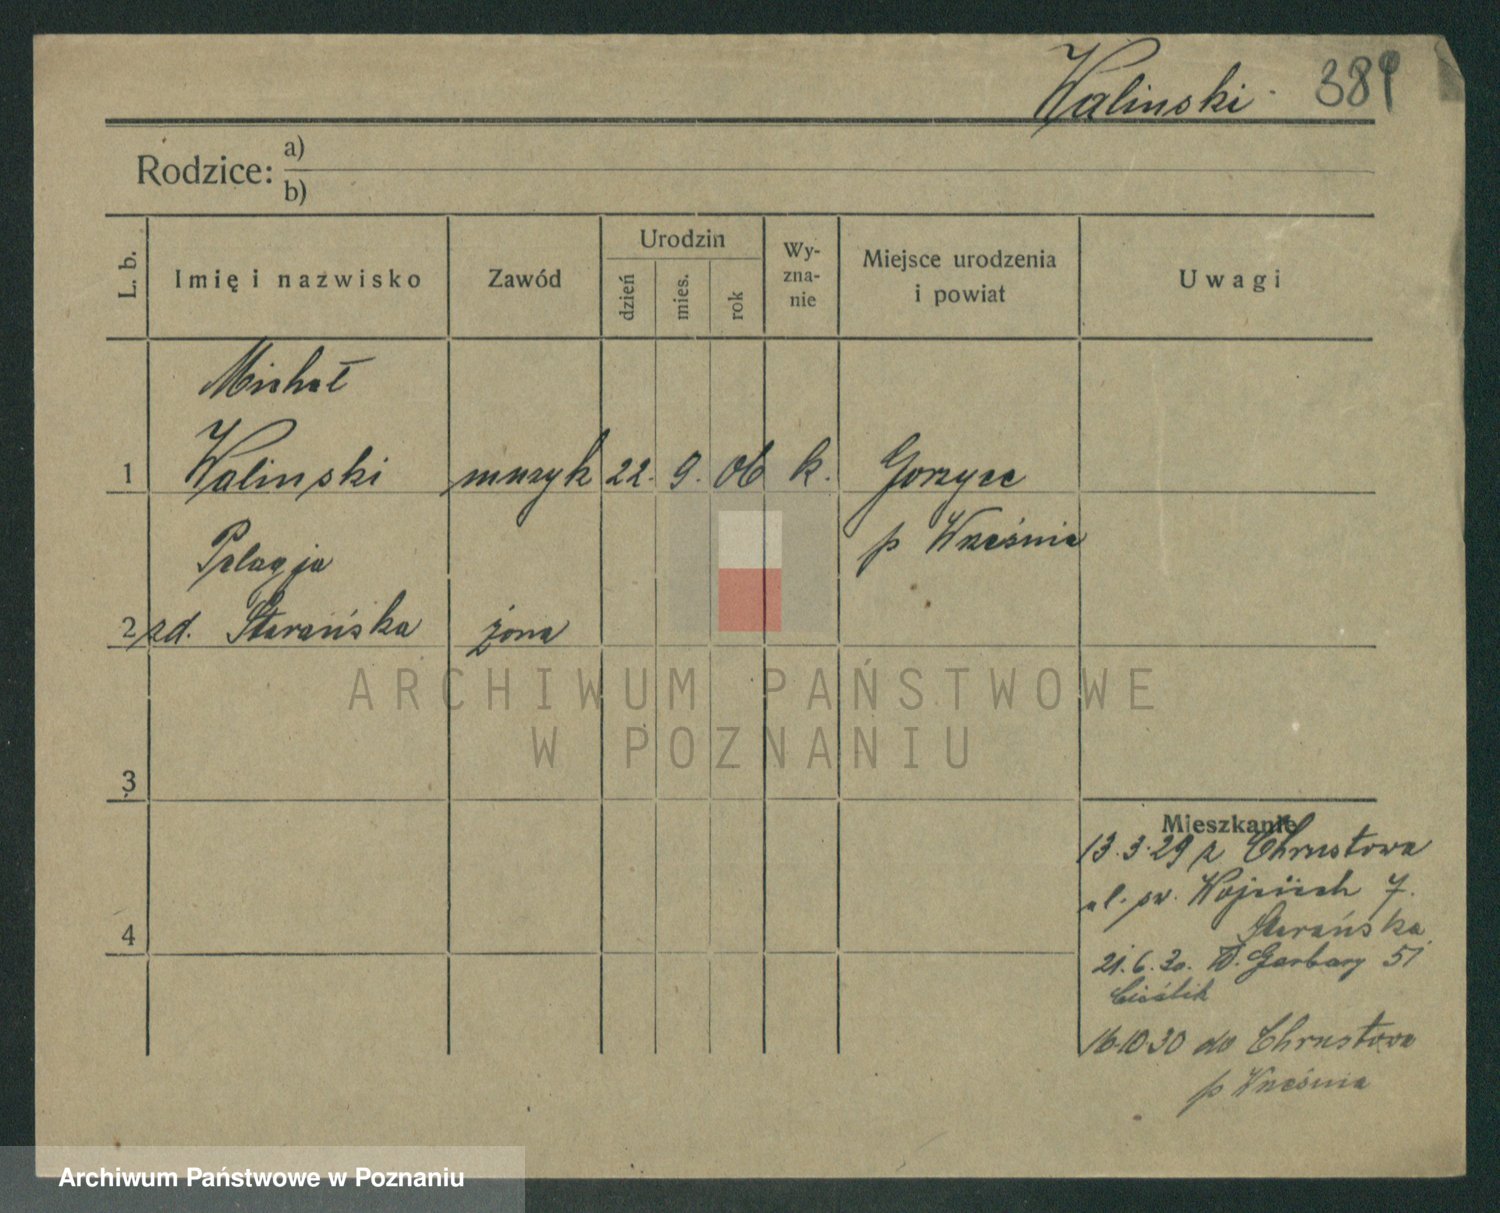 Walinski 389
Rodzice: a)
b)
L. b. Imię i nazwisko Zawód Urodzin dzień mies. rok Wy-zna-nie Miejsce urodzenia i powiat Uwagi
Michał
1 Walinski muzyk 22. 9. 06 k. Gorzyce
p Września
Pelagja
2 zd. Starańska żona
3
4
Mieszkanie
13.3.29 z Chrustowa
ul. św. Wojciech 7.
Starańska
21.6.30. W. Garbary 51
16.10.30 do Chrustowa
p Września
ARCHIWUM PAŃSTWOWE
W POZNANIU
Archiwum Państwowe w Poznaniu